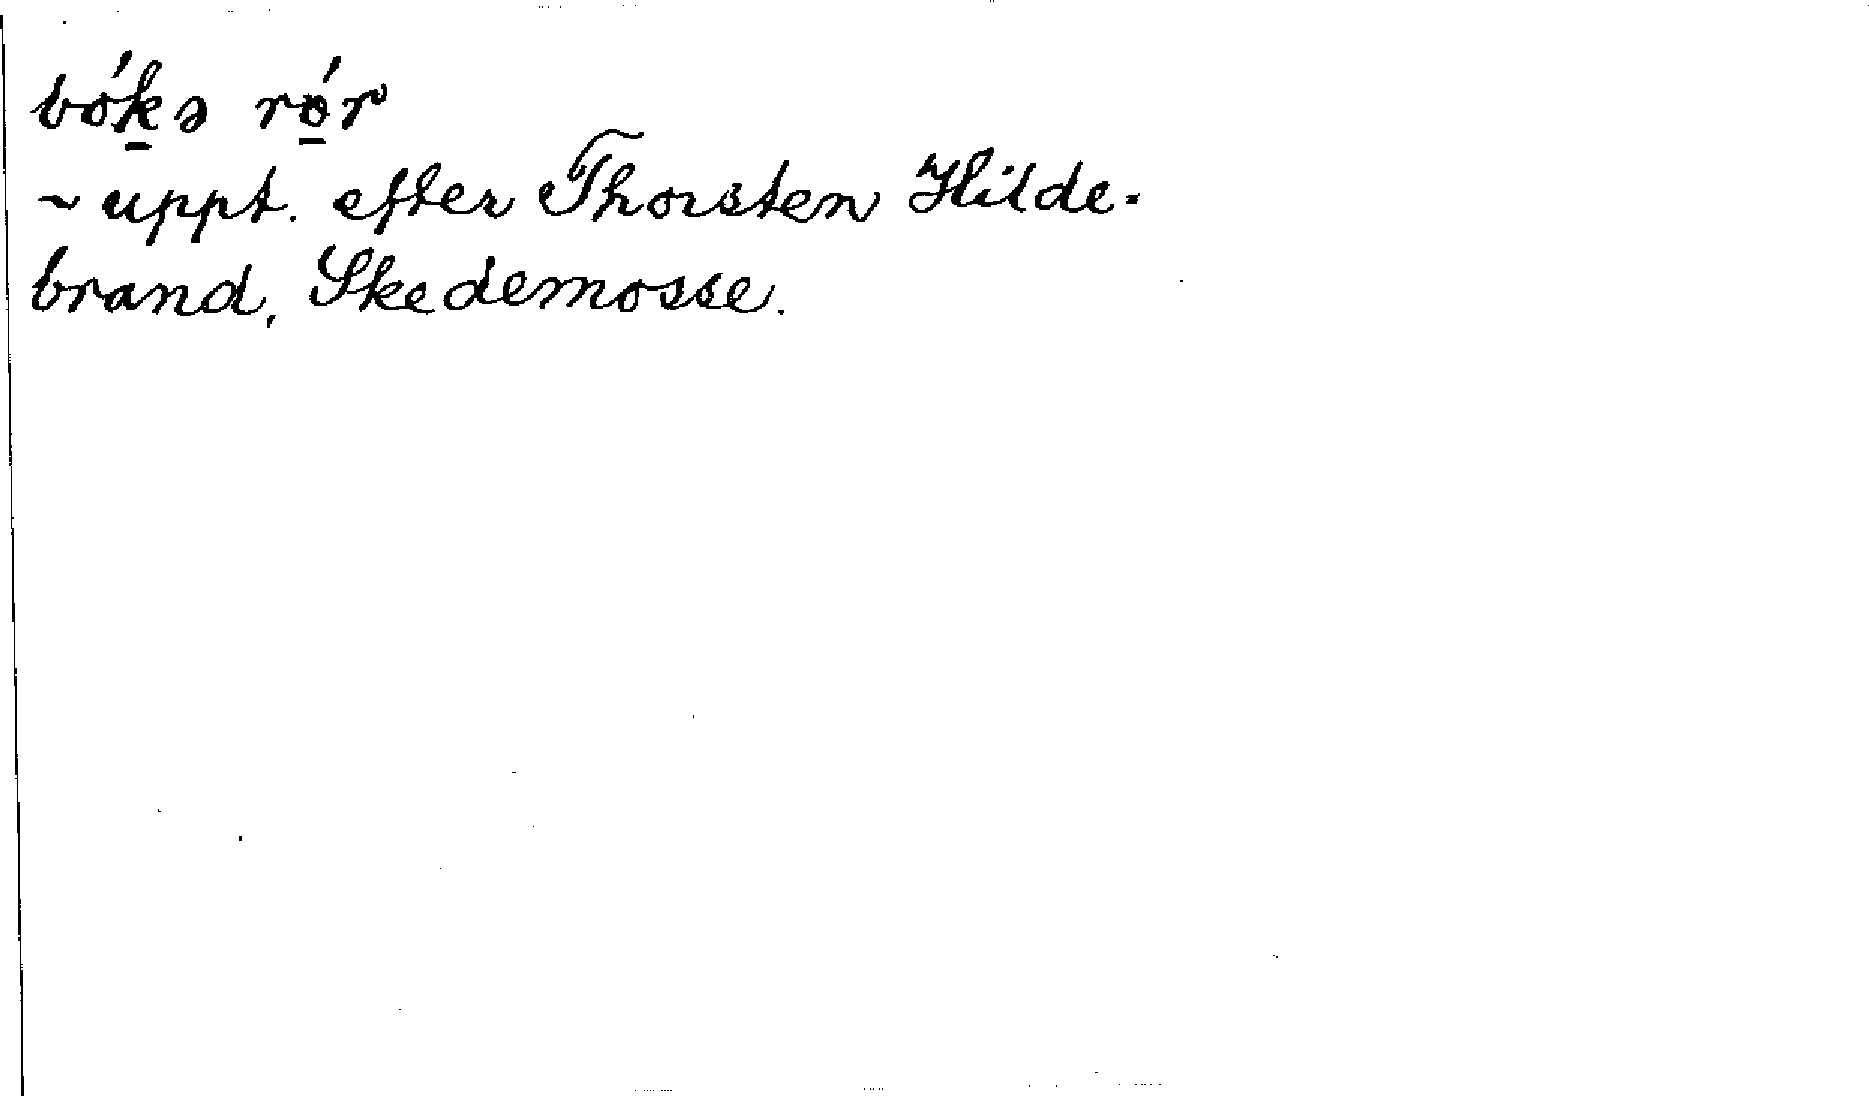 bók̠ə ró̠r
~ uppt. efter Thorsten Hilde-
brand, Skedemosse.